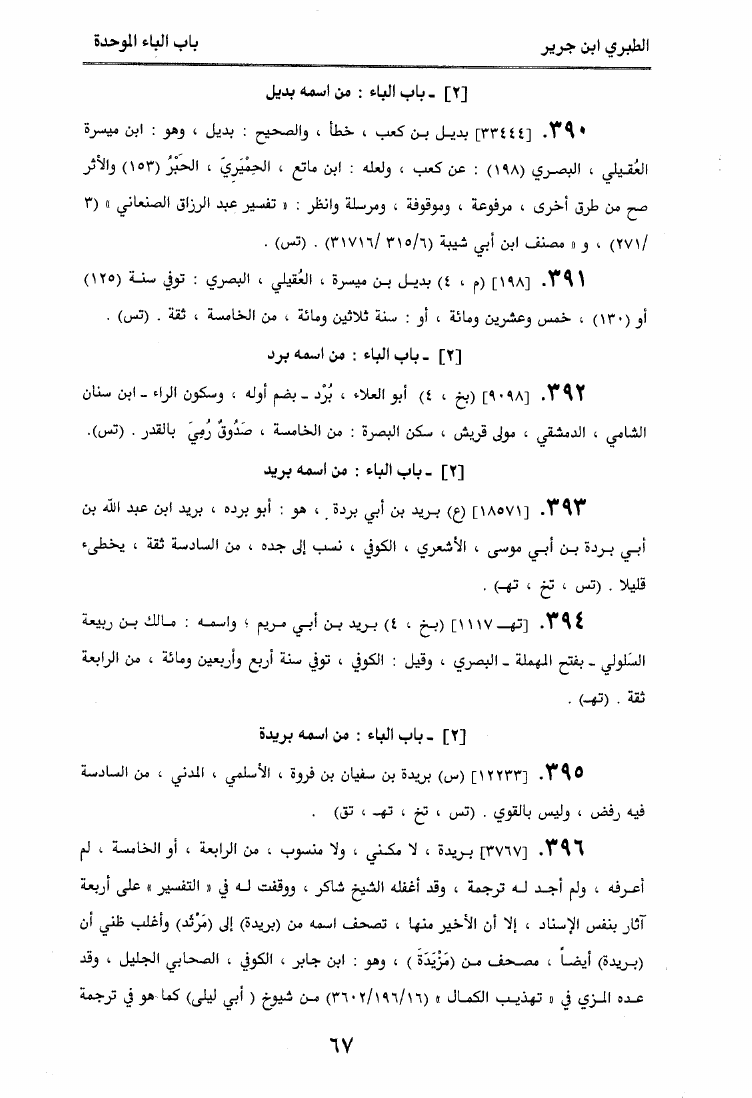 الطبري ابن جرير
باب الباء الموحدة
[٢] ـ باب الباء : من اسمه بديل
٣٩٠. [٣٣٤٤٤] بديـل بـن كعب ، خطأ ، والصحيح : بديل ، وهو : ابن ميسرة
العُقيـلي ، البصـري (١٩٨) : عن كعب ، ولعله : ابن ماتع ، الحِمْيَرِيّ ، الحَبْرُ (١٥٣) والأثر
صح من طرق أخرى ، مرفوعة ، وموقوفة ، ومرسلة وانظر : « تفسير عبد الرزاق الصنعاني » (٣
/٢٧١) ، و « مصنف ابن أبي شيبة (٣١٥/٦ /٣١٧١٦) . (تس) .
٣٩١. [١٩٨] (م ، ٤) بديـل بـن ميسرة ، العُقيلي ، البصري : توفي سنـة (١٢٥)
أو (١٣٠) ، خمس وعشرين ومائة ، أو : سنة ثلاثين ومائة ، من الخامسة ، ثقة . (تس) .
[٢] ـ باب الباء : من اسمه برد
٣٩٢. [٩٠٩٨] (بخ ، ٤) أبو العلاء ، بُرْد ـ بضم أوله ، وسكون الراء ـ ابن سنان
الشامي ، الدمشقي ، مولى قريش ، سكن البصرة : من الخامسة ، صَدُوقٌ رُمِيَ بالقدر . (تس).
[٢] ـ باب الباء : من اسمه بريد
٣٩٣. [١٨٥٧١] (ع) بـريد بن أبي بردة ، هو : أبو برده ، بريد ابن عبد الله بن
أبـي بـردة بـن أبـي موسى ، الأشعري ، الكوفي ، نسب إلى جده ، من السادسة ثقة ، يخطىء
قليلا . (تس ، تخ ، تهـ) .
٣٩٤. [تهـ ١١١٧] (بـخ ، ٤) بريد بـن أبـي مـريم ؛ واسمـه : مـالك بـن ربيعة
السَلولي ـ بفتح المهملة ـ البصري ، وقيل : الكوفي ، توفي سنة أربع وأربعين ومائة ، من الرابعة
ثقة . (تهـ) .
[٢] ـ باب الباء : من اسمه بريدة
٣٩٥. [١٢٢٣٣] (س) بريدة بن سفيان بن فروة ، الأسلمي ، المدني ، من السادسة
فيه رفض ، وليس بالقوي . (تس ، تخ ، تهـ ، تق) .
٣٩٦. [٣٧٦٧] بـريدة ، لا مكـني ، ولا منسوب ، من الرابعة ، أو الخامسة ، لم
أعـرفه ، ولم أجـد لـه ترجمة ، وقد أغفله الشيخ شاكر ، ووقفت لـه في « التفسير » على أربعة
آثار بنفس الإسناد ، إلا أن الأخير منها ، تصحف اسمه من (بريدة) إلى (مَرْثَد) وأغلب ظني أن
(بـريدة) أيضـاً ، مصـحف مـن (مَزْيَدَةَ) ، وهو : ابن جابر ، الكوفي ، الصحابي الجليل ، وقد
عـده المـزي في « تهذيـب الكمـال » (٣٦٠٢/١٩٦/١٦) مـن شيوخ ( أبي ليلى) كما هو في ترجمة
٦٧